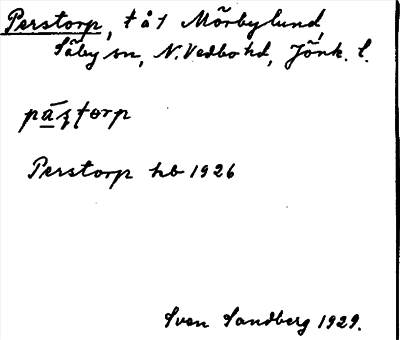 Perstorp, t å 1 Mörbylund,
Säby sn, N. Vedbo hd, Jönk. l.
pa̱ştorp
Perstorp hb 1926
Sven Sandberg 1929.